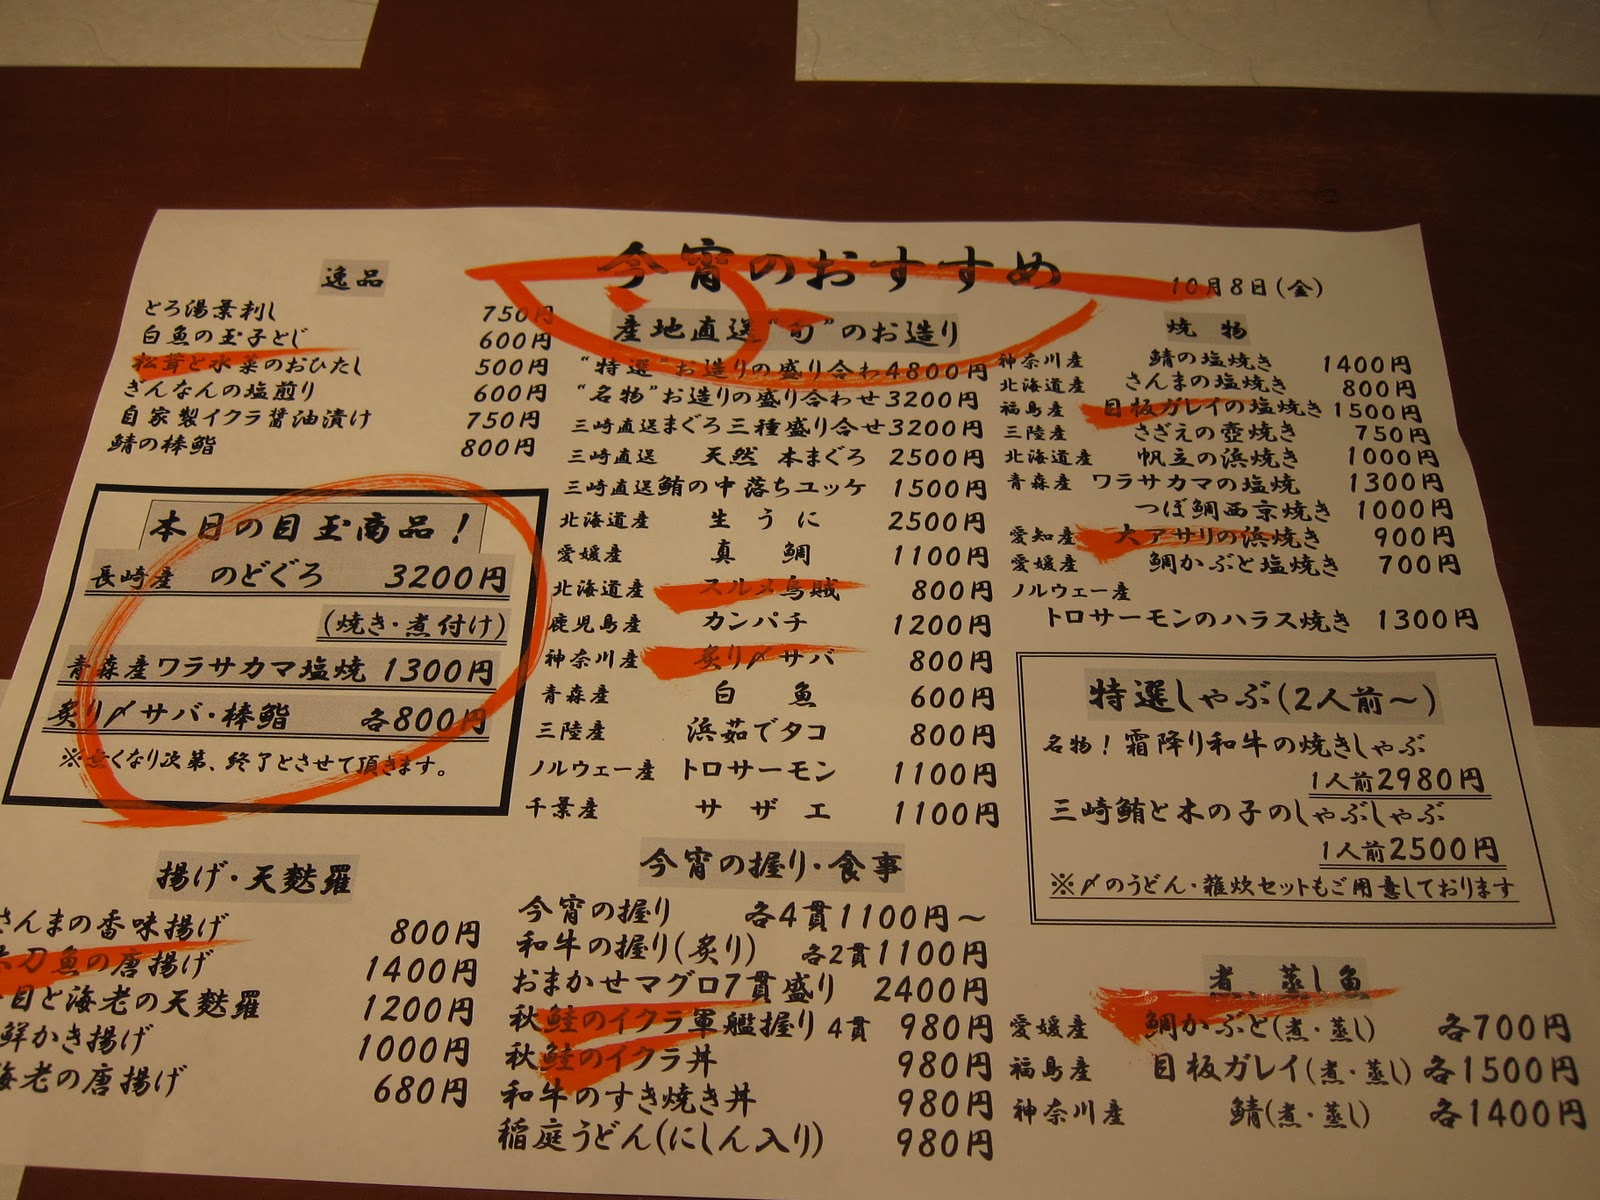 今宵のおすすめ
10月8日(金)
逸品
とろ湯葉刺し 750円
白魚の玉子とじ 600円
松茸と水菜のおひたし 500円
ぎんなんの塩煎り 600円
自家製イクラ醤油漬け 750円
鯖の棒鮨 800円
本日の目玉商品!
長崎産 のどぐろ 3200円
(焼き・煮付け)
青森産ワラサカマ塩焼 1300円
炙り〆サバ・棒鮨 各800円
※無くなり次第、終了とさせて頂きます。
揚げ・天麩羅
さんまの香味揚げ 800円
太刀魚の唐揚げ 1400円
目と海老の天麩羅 1200円
鮮かき揚げ 1000円
海老の唐揚げ 680円
産地直送"旬"のお造り
"特選"お造りの盛り合わ4800円
"名物"お造りの盛り合わせ3200円
三崎直送まぐろ三種盛り合せ3200円
三崎直送 天然 本まぐろ 2500円
三崎直送鮪の中落ちユッケ 1500円
北海道産 生うに 2500円
愛媛産 真鯛 1100円
北海道産 スルメ烏賊 800円
鹿児島産 カンパチ 1200円
神奈川産 炙り〆サバ 800円
青森産 白魚 600円
三陸産 浜茹でタコ 800円
ノルウェー産 トロサーモン 1100円
千葉産 サザエ 1100円
今宵の握り・食事
今宵の握り 各4貫1100円~
和牛の握り(炙り) 各2貫1100円
おまかせマグロ7貫盛り 2400円
秋鮭のイクラ軍艦握り4貫 980円
秋鮭のイクラ丼 980円
和牛のすき焼き丼 980円
稲庭うどん(にしん入り) 980円
焼物
神奈川産 鯖の塩焼き 1400円
北海道産 さんまの塩焼き 800円
福島産 目板ガレイの塩焼き 1500円
三陸産 さざえの壺焼き 750円
北海道産 帆立の浜焼き 1000円
青森産 ワラサカマの塩焼 1300円
つぼ鯛西京焼き 1000円
愛知産 大アサリの浜焼き 900円
愛媛産 鯛かぶと塩焼き 700円
ノルウェー産
トロサーモンのハラス焼き 1300円
特選しゃぶ(2人前~)
名物!霜降り和牛の焼きしゃぶ
1人前2980円
三崎鮪と木の子のしゃぶしゃぶ
1人前2500円
※〆のうどん・雑炊セットもご用意しております
煮、蒸し魚
愛媛産 鯛かぶと(煮・蒸し) 各700円
福島産 目板ガレイ(煮・蒸し) 各1500円
神奈川産 鯖(煮・蒸し) 各1400円